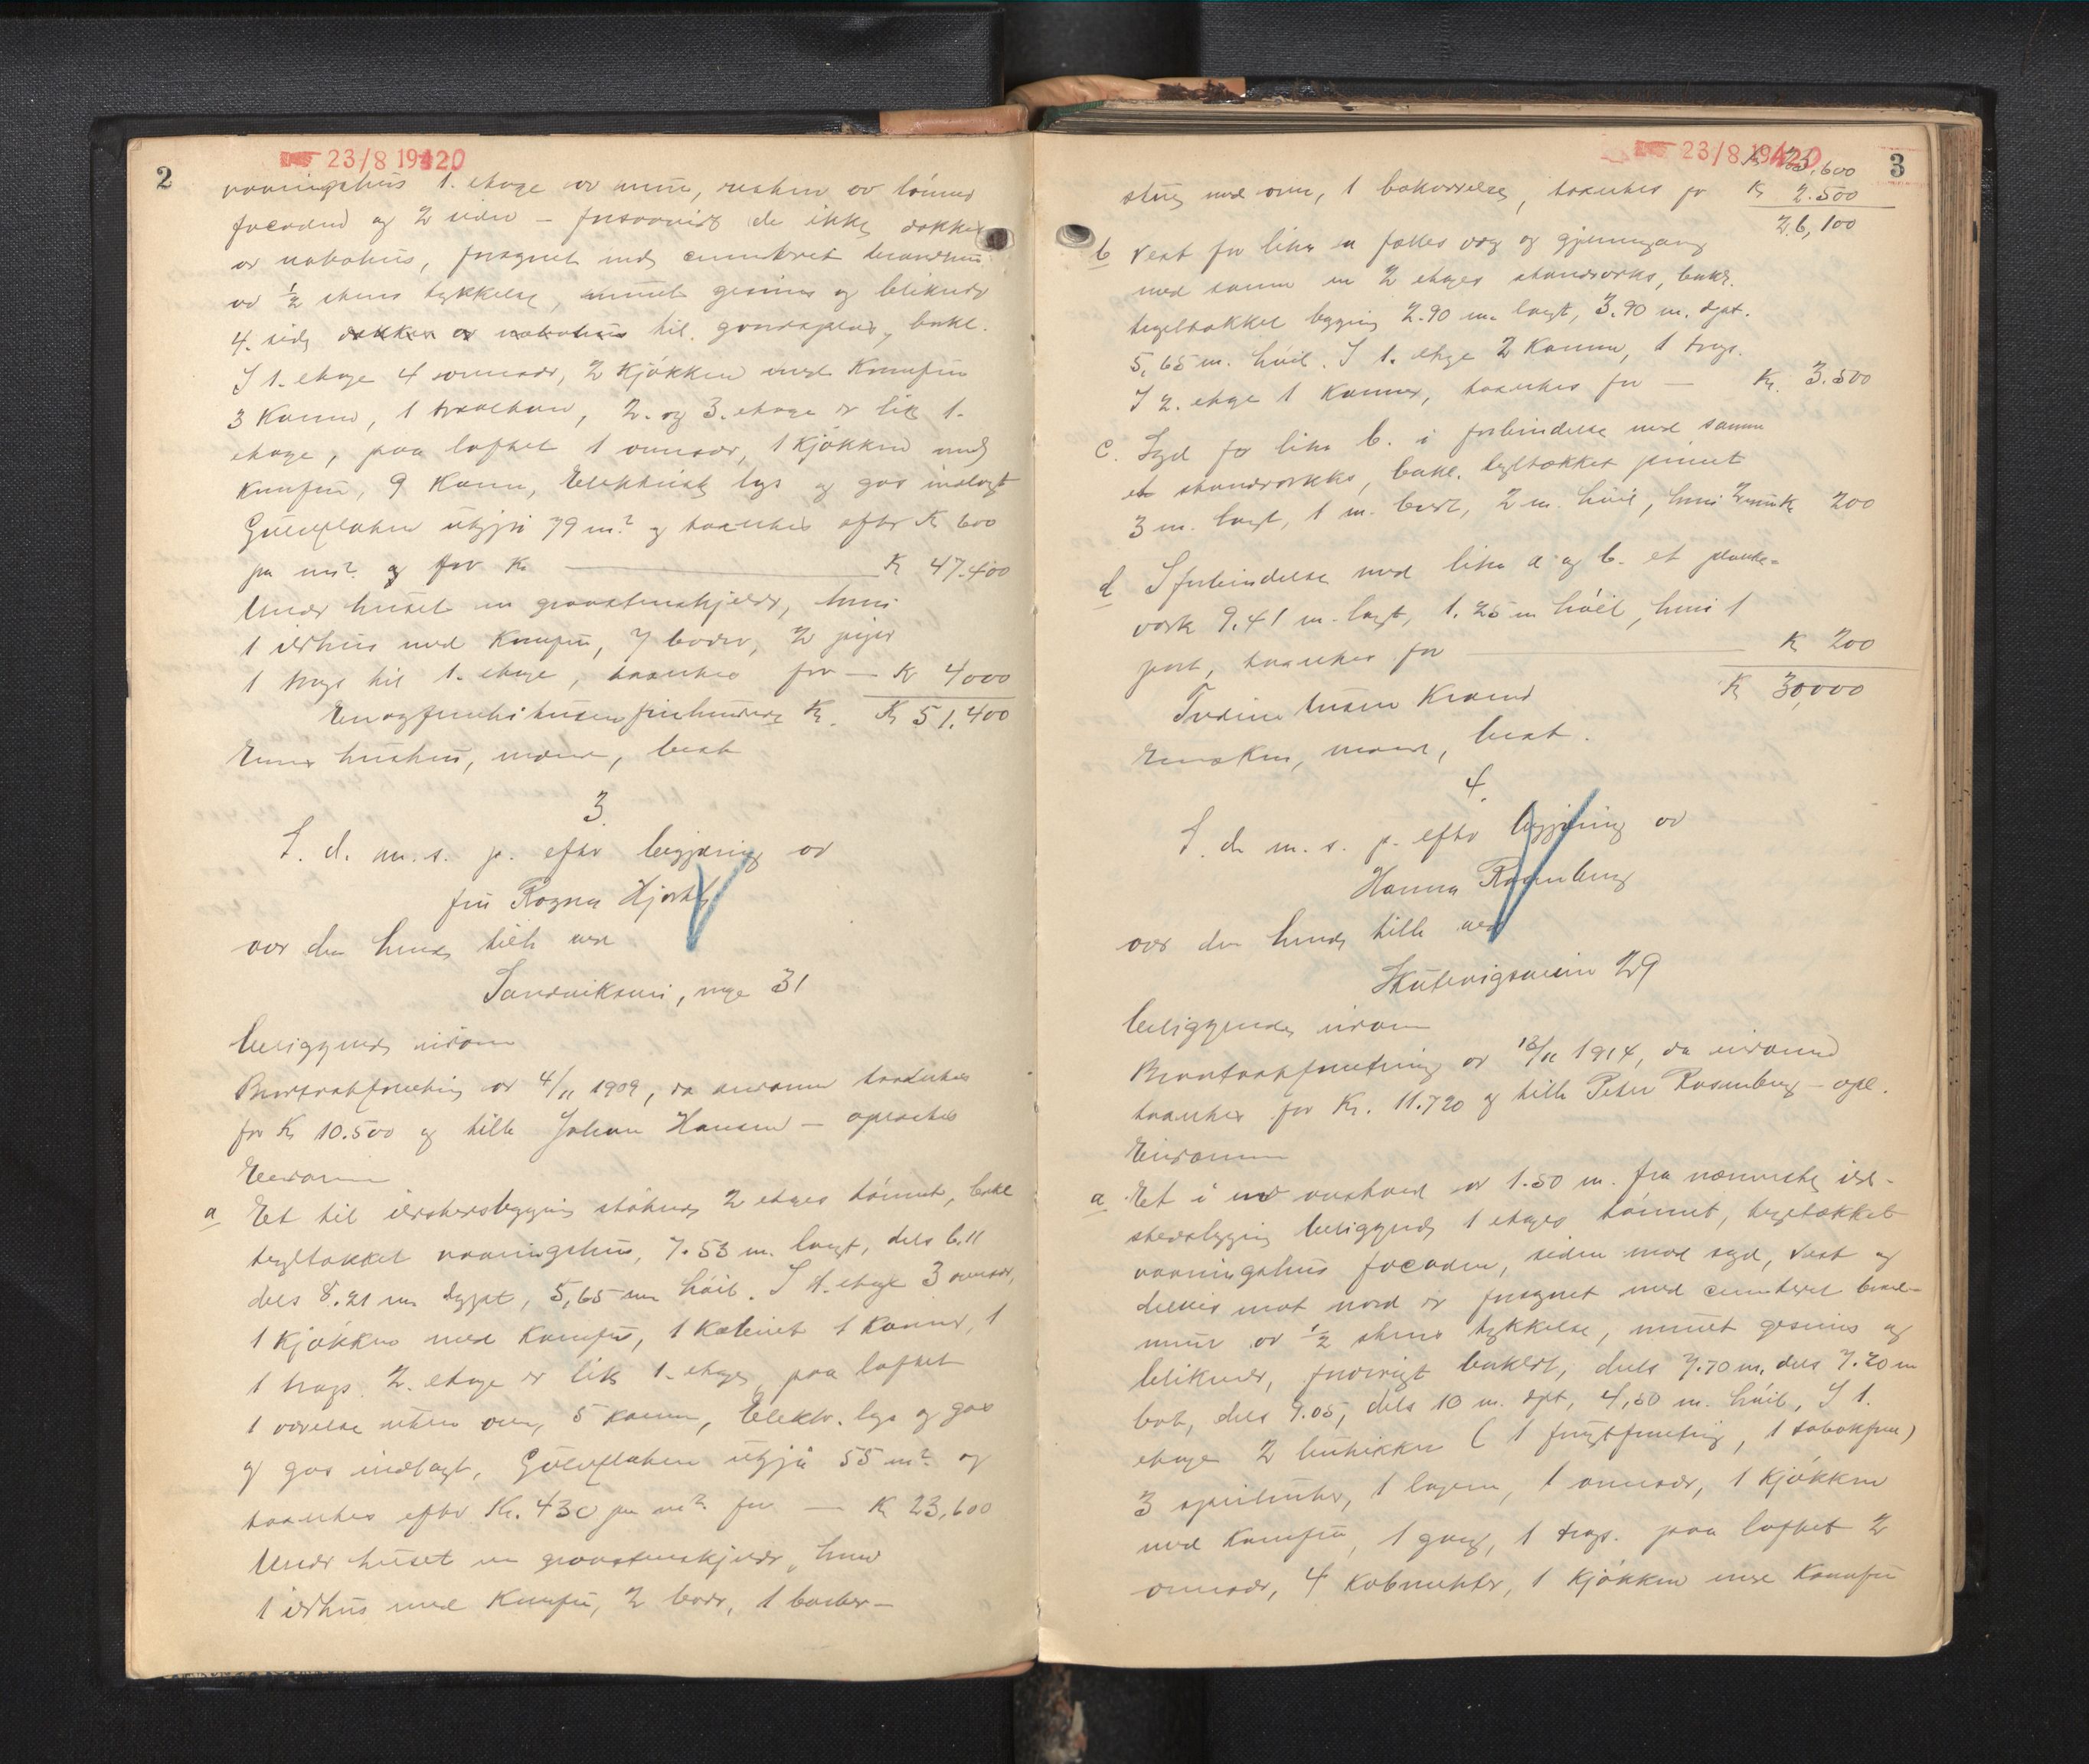 2
23/8 1920
vaaningshus 1. etage av mur, resten av tømmer
facaden og 2 sider – forsaavidt de ikke dækkes
av nabohus, forsynet med cementeret brandmur
av ½ stens tykkelse, muret gesims og blikrender
4. side dækkes av nabohus til gaardsplads, bakl.
I 1. etage 4 ovnsvær, 2 kjøkken med komfur
3 kammer, 1 trappe, 2. og 3. etage er lik 1.
etage, paa loftet 1 ovnsvær, 1 kjøkken med
komfur, 9 kammer, Elektrisk lys og gas indlagt
Gulvflaten utgjør 79 m² og taxeres efter Kr 600
pr m² og for Kr. — Kr 47.400
Under huset en graastenskjelder, hvori
1 ildhus med komfur, 7 boder, 2 piper
1 trap til 1. etage, taxeres for — Kr 4000
Enogfemti tusen firehundrede Kr. Kr 51.400
Einar hushus, mener, best
3.
S. d. m. s. p. efter begjæring av
fru Ragna Hjorth
over den hende tilh. ved
Sandviksvei, nye 31
beliggende eiendom
Branttaxtforretning av 4/11 1909, da eiendommen taxertes
for Kr 10.500 og tilh Johan Hansen – oplæstes
Eiendommen
a Et til ildstedsbygging støtende 2 etages tømmer, bakl
tegltækket vaaningshus, 7.53 m. langt, dels 6.11
dels 8.21 m. dypt, 5,65 m høit. I 1. etage 3 ovnsvær,
1 kjøkken med komfur, 1 kabinet 1 kammer, 1
1 trap. 2. etage er lik 1. etage, paa loftet
1 værelse uten ovn, 5 kammer, Elektr. lys og gas
og gas indlagt, Gulvflaten utgjør 55 m² og
taxeres efter Kr. 430 pr m² for — Kr 23,600
Under huset en graastenskjelder, hvori
1 ildhus med komfur, 2 boder, 1 barber-
3
23/8 1920
Kr 23,600
stue med ovn, 1 bakværelse, taxeres for Kr 2.500
26,100
b Vest for litra a fælles væg og gjennemgang
med samme en 2 etages standværks, bakl.
tegltækket bygning 2.90 m. langt, 3.90 m. dypt.
5,65 m. høit. I 1. etage 2 kammer, 1 trap.
I 2. etage 1 kammer, taxeres for — Kr. 3.500
c. Syd for litra b. i forbindelse med samme
et standværks, bakl. tegltækket
3 m. langt, 1 m. bredt, 2 m. høit, hvori 200
d I forbindelse med litra a og b. et planke-
værk 9.41 m. langt, 1.25 m høit, hvori 1
port, taxeres for — Kr 200
Kr 30,000
Tredive tusen Kroner
mener, best.
4.
S. d. m. s. p. efter begjæring av
Hanna Rosenberg
over den hende tilh. ved
Skutevigsveien 29
beliggende eiendom
Branttaxtforretning av 18/11 1914, da eiendommen
taxertes for Kr. 11.720 og tilh Peter Rosenberg – opl.
Eiendommen
a Et i en avstand av 1.50 m. fra nærmeste ild-
stedsbygging beliggende 1 etages tømmer, tegltækket
vaaningshus facaden, siden mot syd, vest og
delvis mot nord er forsynet med cementeret brand-
mur av ½ stens tykkelse, muret gesims og
blikrender, forøvrigt bakledt, dels 7.70 m. dels 7.20 m
bret, dels 9.05, dels 10 m. dypt, 4,50 m. høit, I 1.
etage 2 butikker ( 1 frugtforretning, 1 tobakforr)
3 1 lager, 1 ovnsvær, 1 kjøkken
med komfur, 1 gang, 1 trap. paa loftet 2
ovnsvær, 4 kabinetter, 1 kjøkken med komfur